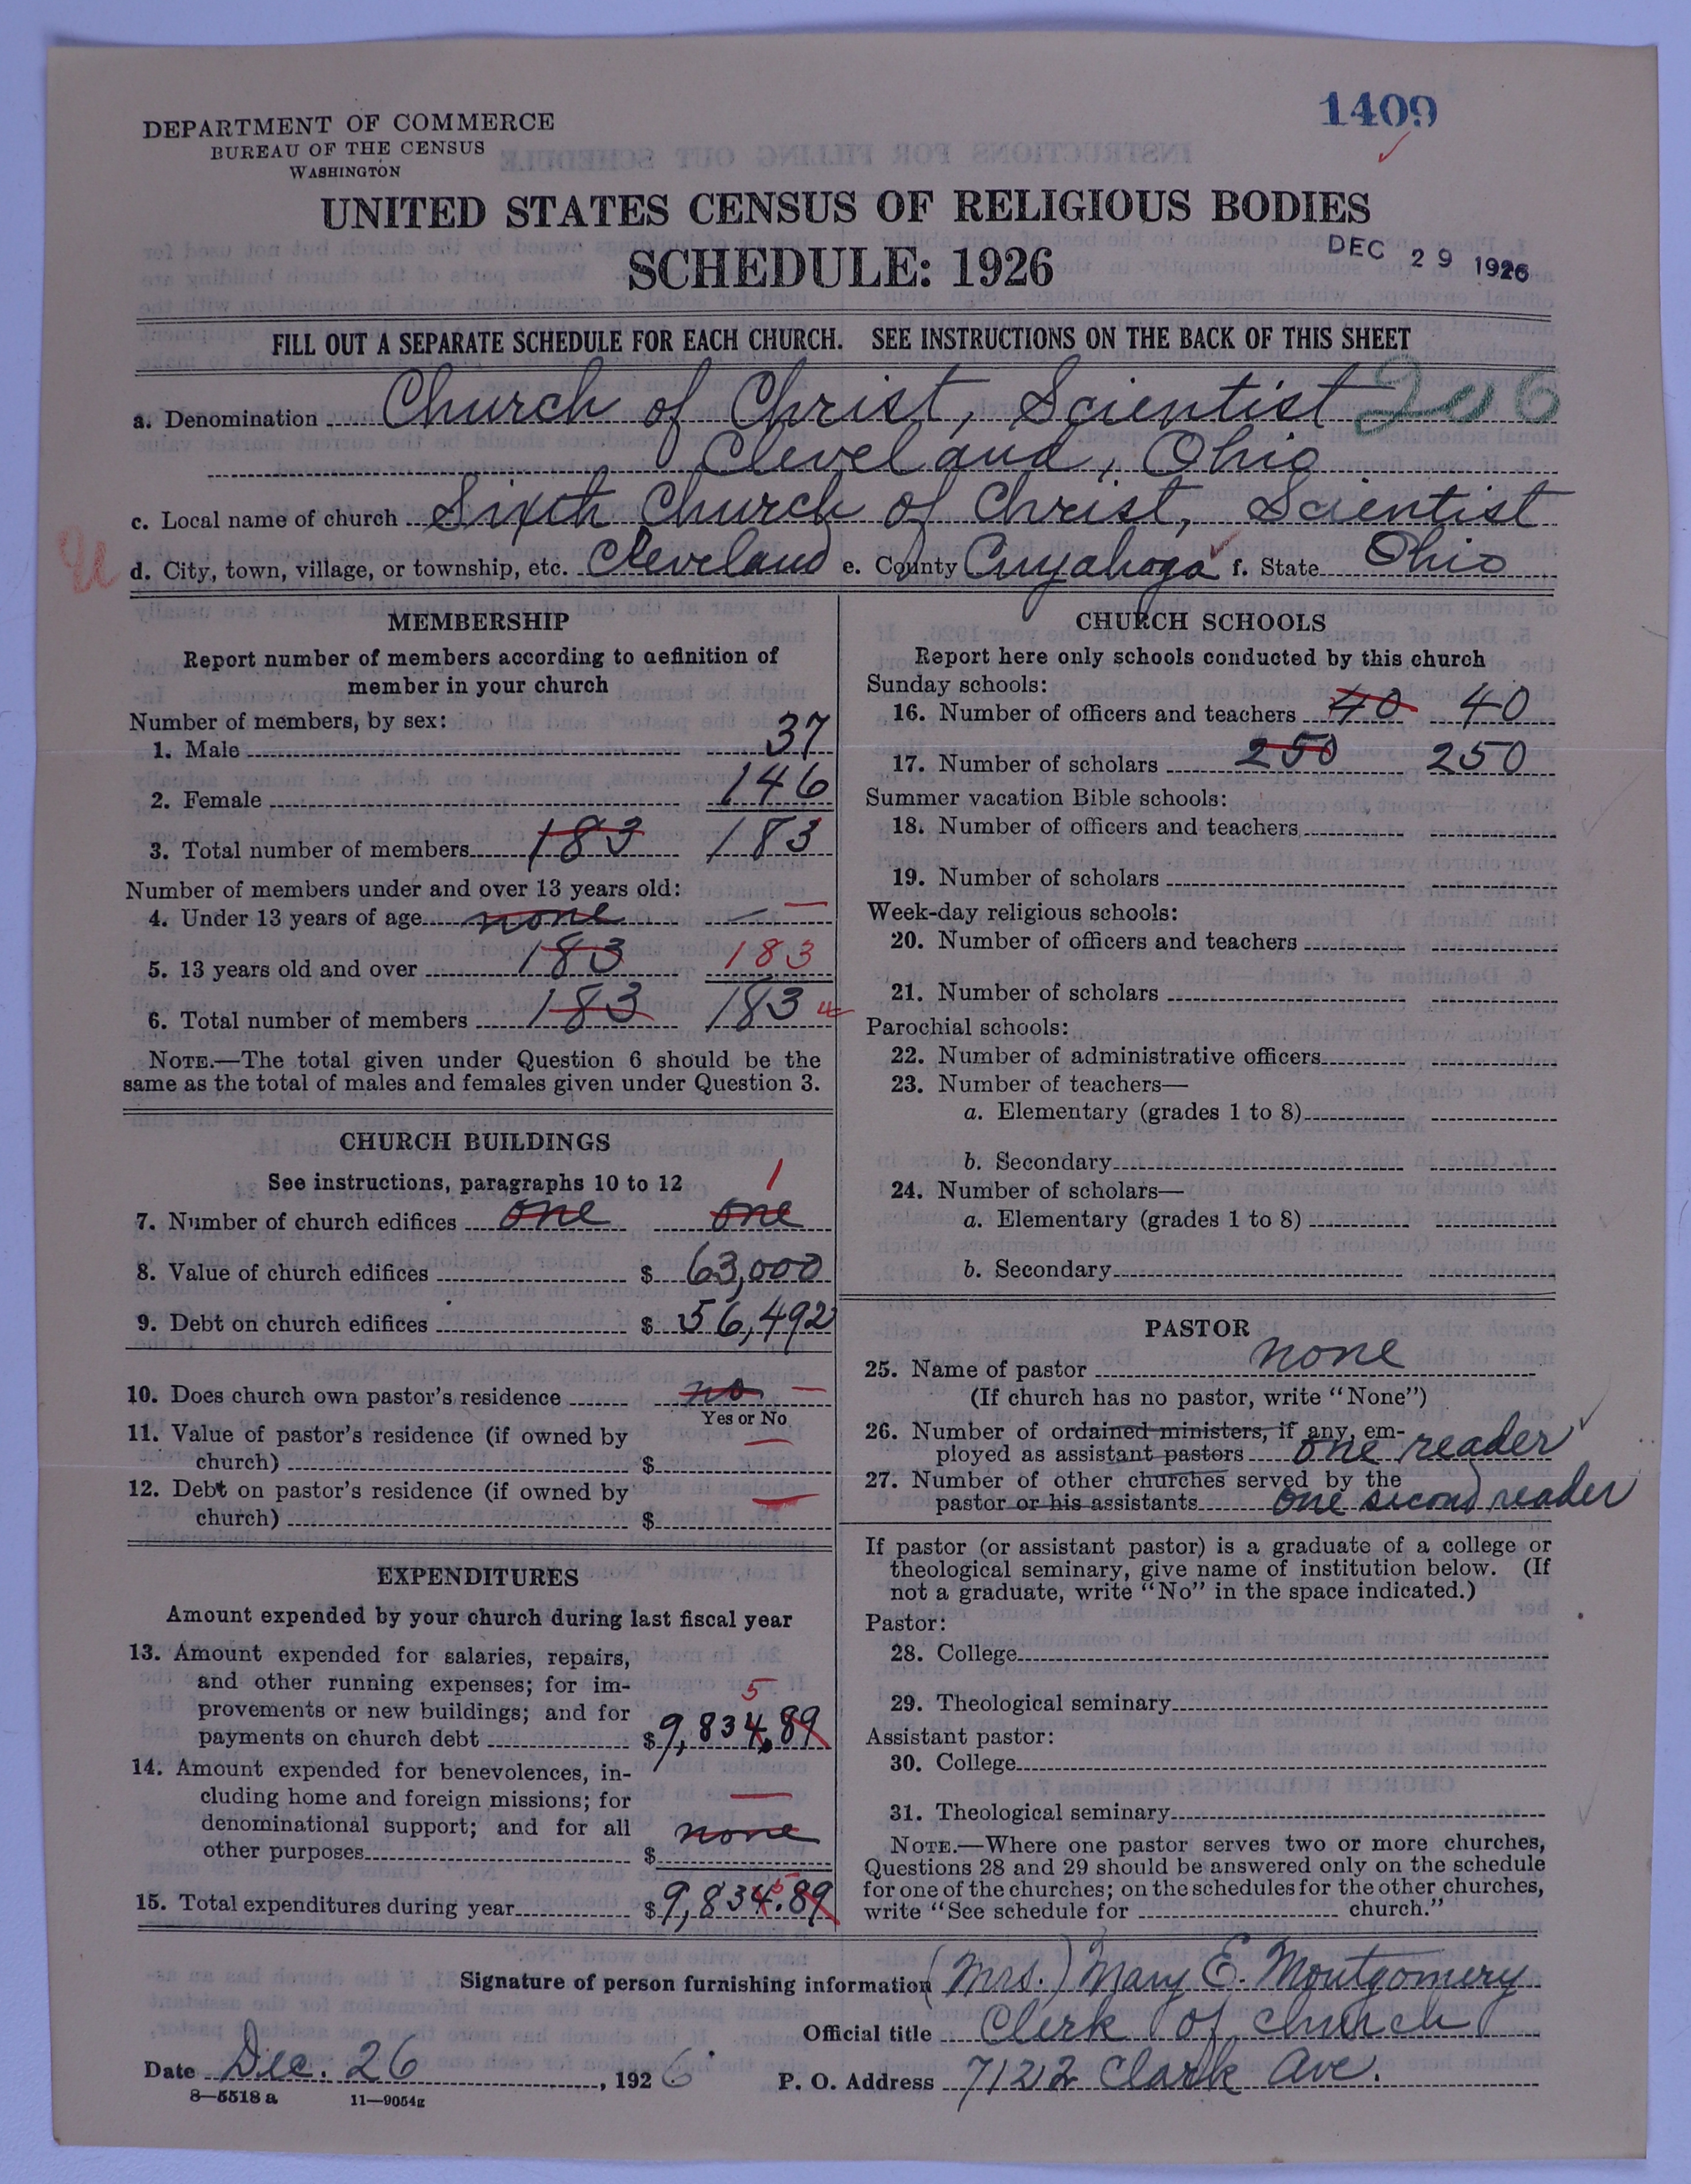 1409
DEPARTMENT OF COMMERCE
BUREAU OF THE CENSUS
WASHINGTON
UNITED STATES CENSUS OF RELIGIOUS BODIES
SCHEDULE: 1926
DEC 29 1926
FILL OUT A SEPARATE SCHEDULE FOR EACH CHURCH. SEE INSTRUCTIONS ON THE BACK OF THIS SHEET
a. Denomination Church of Christ, Scientist 206
Cleveland, Ohio
c. Local name of church Sixth Church of Christ, Scientist
d. City, town, village, or township, etc. Cleveland e. County Cuyahoga f. State Ohio
MEMBERSHIP
Report number of members according to definition of
member in your church
Number of members, by sex:
1. Male 37
2. Female 146
3. Total number of members 183 183
Number of members under and over 13 years old:
4. Under 13 years of age none —
5. 13 years old and over 183 183
6. Total number of members 183 183
NOTE.—The total given under Question 6 should be the
same as the total of males and females given under Question 3.
CHURCH BUILDINGS
See instructions, paragraphs 10 to 12 1
7. Number of church edifices one one
8. Value of church edifices $ 63,000
9. Debt on church edifices $ 56,492
10. Does church own pastor's residence no —
Yes or No
11. Value of pastor's residence (if owned by —
church) $
12. Debt on pastor's residence (if owned by —
church) $
EXPENDITURES
Amount expended by your church during last fiscal year
13. Amount expended for salaries, repairs,
and other running expenses; for im-
provements or new buildings; and for 5
payments on church debt $ 9,834.89
14. Amount expended for benevolences, in-
cluding home and foreign missions; for —
denominational support; and for all none
other purposes $
15. Total expenditures during year $ 9,834.89 5
CHURCH SCHOOLS
Report here only schools conducted by this church
Sunday schools:
16. Number of officers and teachers 40 40
17. Number of scholars 250 250
Summer vacation Bible schools:
18. Number of officers and teachers
19. Number of scholars
Week-day religious schools:
20. Number of officers and teachers
21. Number of scholars
Parochial schools:
22. Number of administrative officers
23. Number of teachers—
a. Elementary (grades 1 to 8)
b. Secondary
24. Number of scholars—
a. Elementary (grades 1 to 8)
b. Secondary
PASTOR
25. Name of pastor none
(If church has no pastor, write "None")
26. Number of ordained ministers, if any, em-
ployed as assistant pastors one reader
27. Number of other churches served by the
pastor or his assistants one second reader
If pastor (or assistant pastor) is a graduate of a college or
theological seminary, give name of institution below. (If
not a graduate, write "No" in the space indicated.)
Pastor:
28. College
29. Theological seminary
Assistant pastor:
30. College
31. Theological seminary
NOTE.—Where one pastor serves two or more churches,
Questions 28 and 29 should be answered only on the schedule
for one of the churches; on the schedules for the other churches,
write "See schedule for church."
Signature of person furnishing information (Mrs.) Mary E. Montgomery
Official title Clerk of church
Date Dec. 26, 1926 P. O. Address 7122 Clark Ave.
8—5518 a 11—9054g